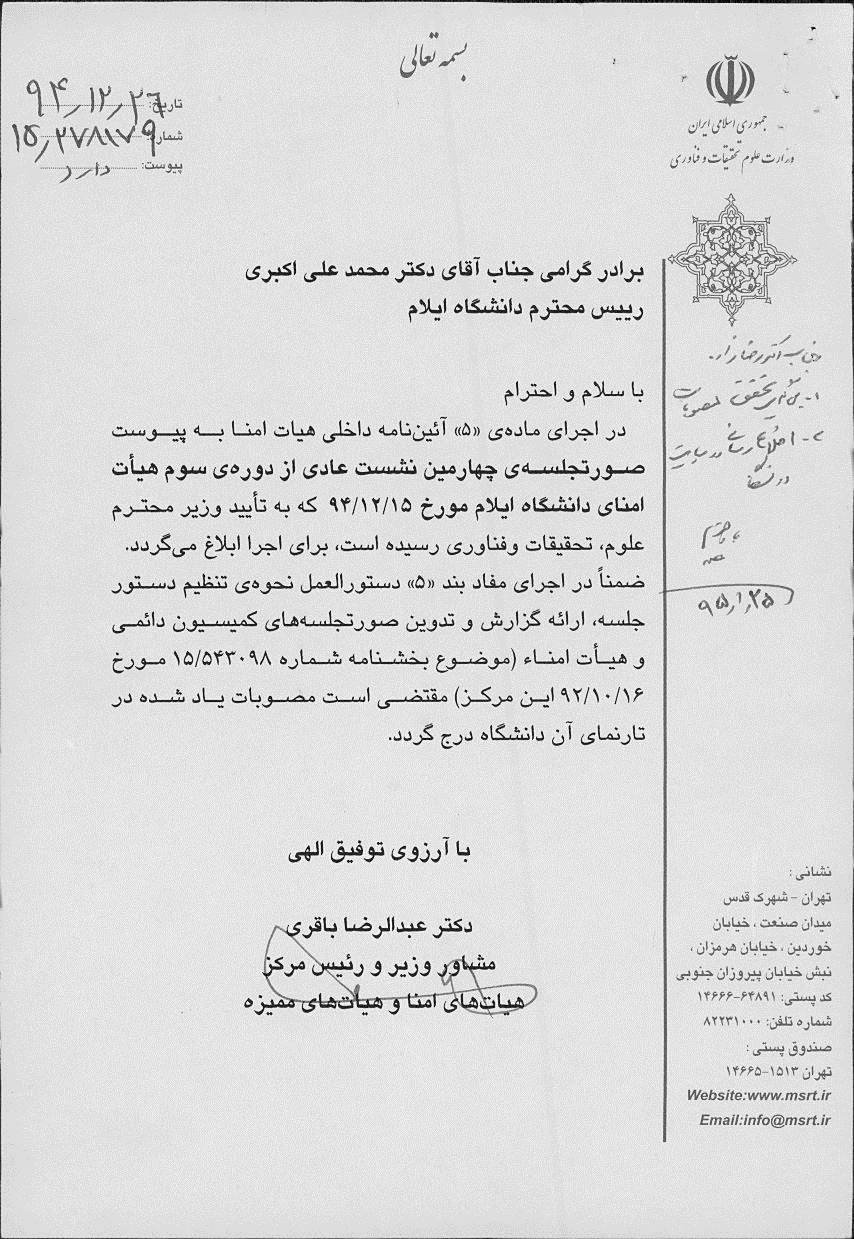 بسمه تعالی
جمهوری اسلامی ایران
وزارت علوم تحقیقات و فناوری
تاریخ: ۹۴/۱۲/۲۶
شماره: ۱۵/۲۷۸۱۷۹
پیوست: دارد
برادر گرامی جناب آقای دکتر محمد علی اکبری
رییس محترم دانشگاه ایلام
با سلام و احترام
در اجرای ماده‌ی «۵» آئین‌نامه داخلی هیات امنا به پیوست
صورتجلسه‌ی چهارمین نشست عادی از دوره‌ی سوم هیأت
امنای دانشگاه ایلام مورخ ۹۴/۱۲/۱۵ که به تأیید وزیر محترم
علوم، تحقیقات وفناوری رسیده است، برای اجرا ابلاغ می‌گردد.
ضمناً در اجرای مفاد بند «۵» دستورالعمل نحوه‌ی تنظیم دستور
جلسه، ارائه گزارش و تدوین صورتجلسه‌های کمیسیون دائمی
و هیأت امناء (موضوع بخشنامه شماره ۱۵/۵۴۳۰۹۸ مورخ
۹۲/۱۰/۱۶ این مرکز) مقتضی است مصوبات یاد شده در
تارنمای آن دانشگاه درج گردد.
با آرزوی توفیق الهی
دکتر عبدالرضا باقری
مشاور وزیر و رئیس مرکز
هیات‌های امنا و هیأت‌های ممیزه
جناب دکتر
۱- تحقق مصوبات
۲- اطلاع رسانی در سایت
دانشگاه
۹۵/۱/۲۵
نشانی :
تهران - شهرک قدس
میدان صنعت ، خیابان
خوردین ، خیابان هرمزان ،
نبش خیابان پیروزان جنوبی
کد پستی: ۶۴۸۹۱-۱۴۶۶۶
شماره تلفن: ۸۲۲۳۱۰۰۰
صندوق پستی :
تهران ۱۵۱۳-۱۴۶۶۵
Website:www.msrt.ir
Email:info@msrt.ir